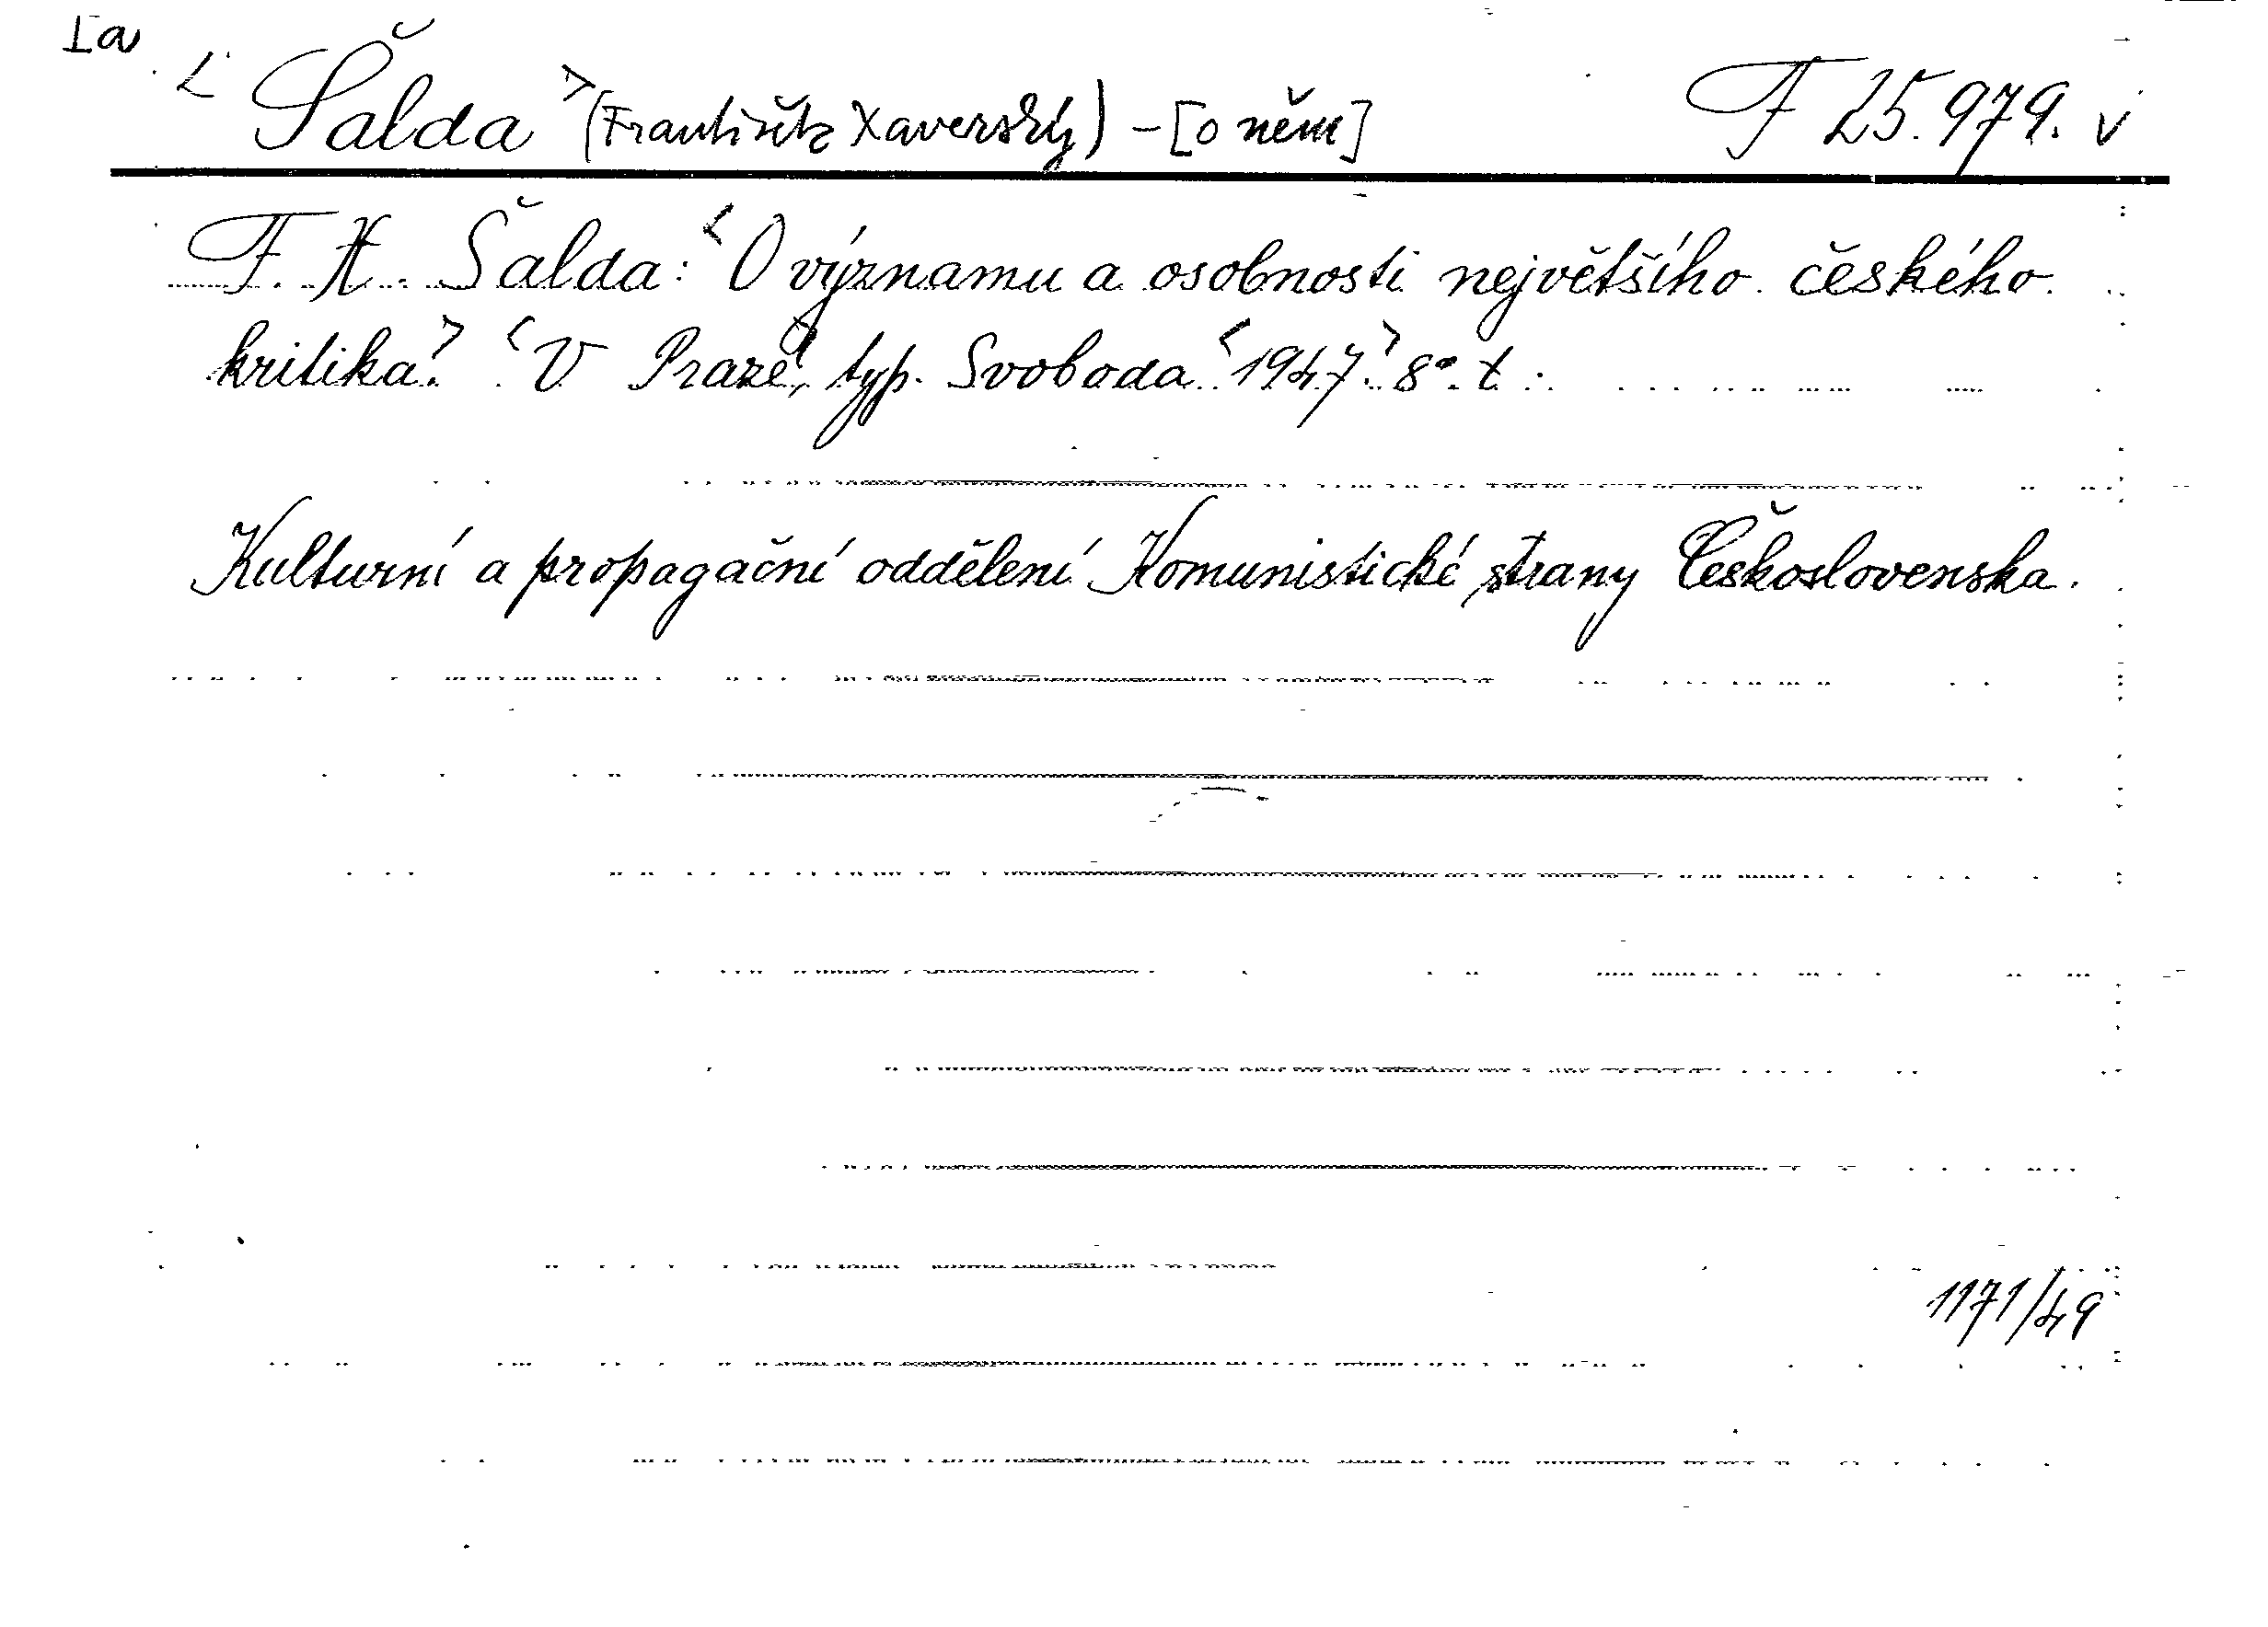 Ia
<Šalda> (František Xaverský) - [o něm] F 25.979. v
F. X. Šalda: <O významu a osobnosti největšího českého
kritika.> <V Praze>, typ. Svoboda <1947.> 8°. t.
Kulturní a propagační oddělení Komunistické strany Československa.
1171/49